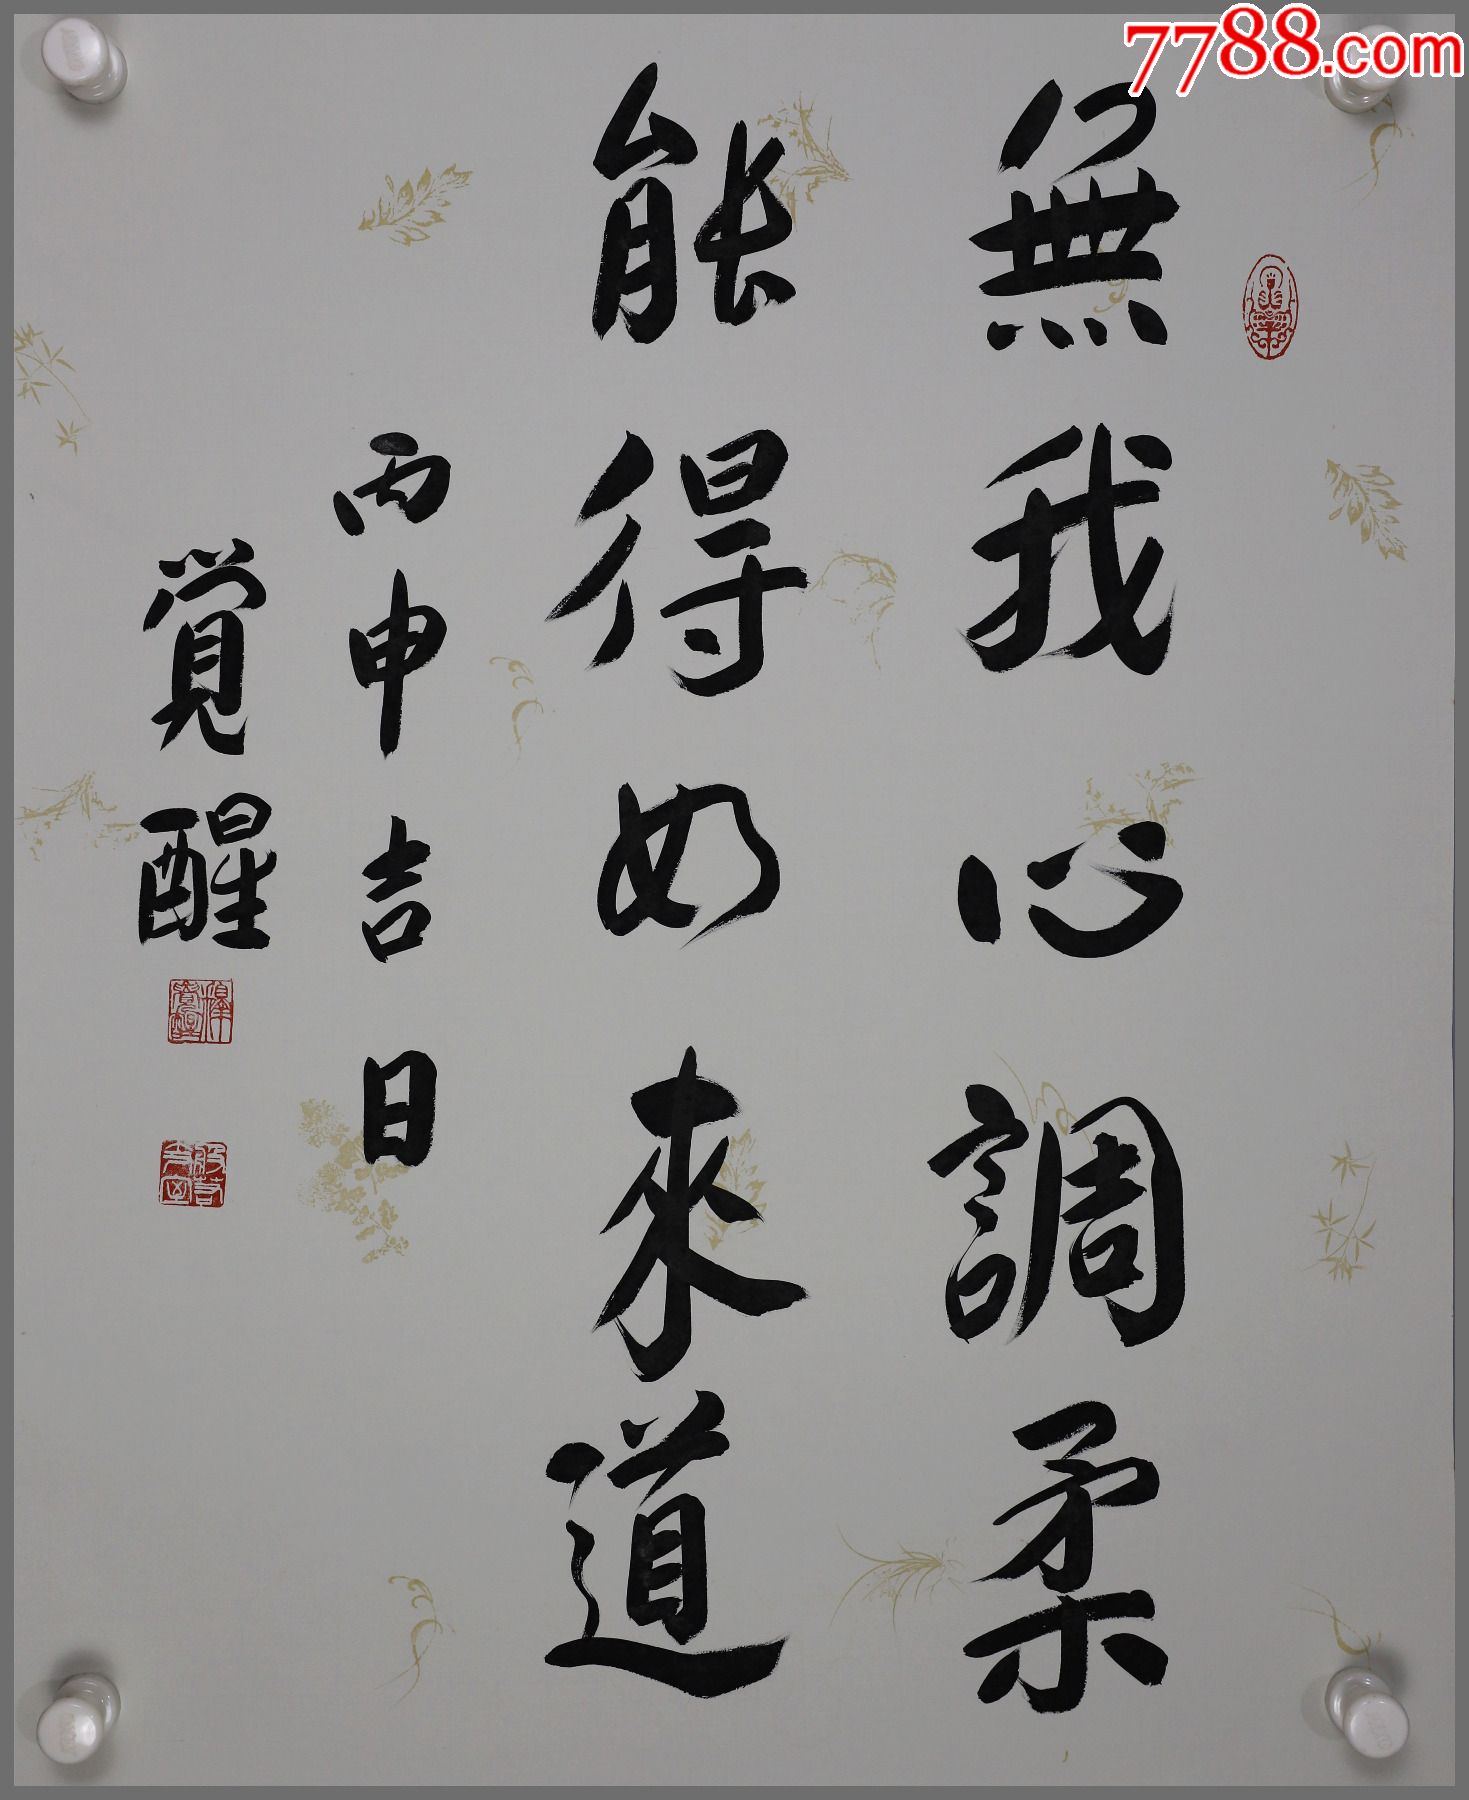 7788.com
無我心調柔
能得如來道
丙申吉日
覺醒